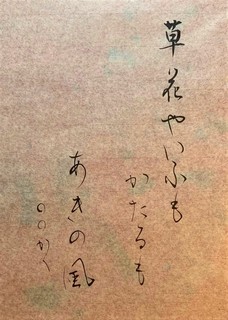 草花やいふも
かたるも
あきの風